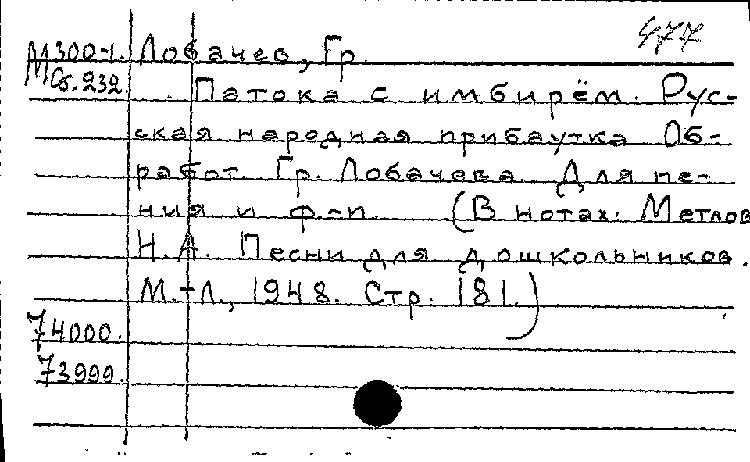 477
М300-1. Лобачев, Гр.
Сб.232.
Патока с имбирём. Рус-
ская народная прибаутка Об-
работ. Гр. Лобачева Для пе-
ния и ф-п (В нотах: Метлов
Н.А. Песни для дошкольников.
М.-Л., 1948. Стр. 181.)
74000.
73999.